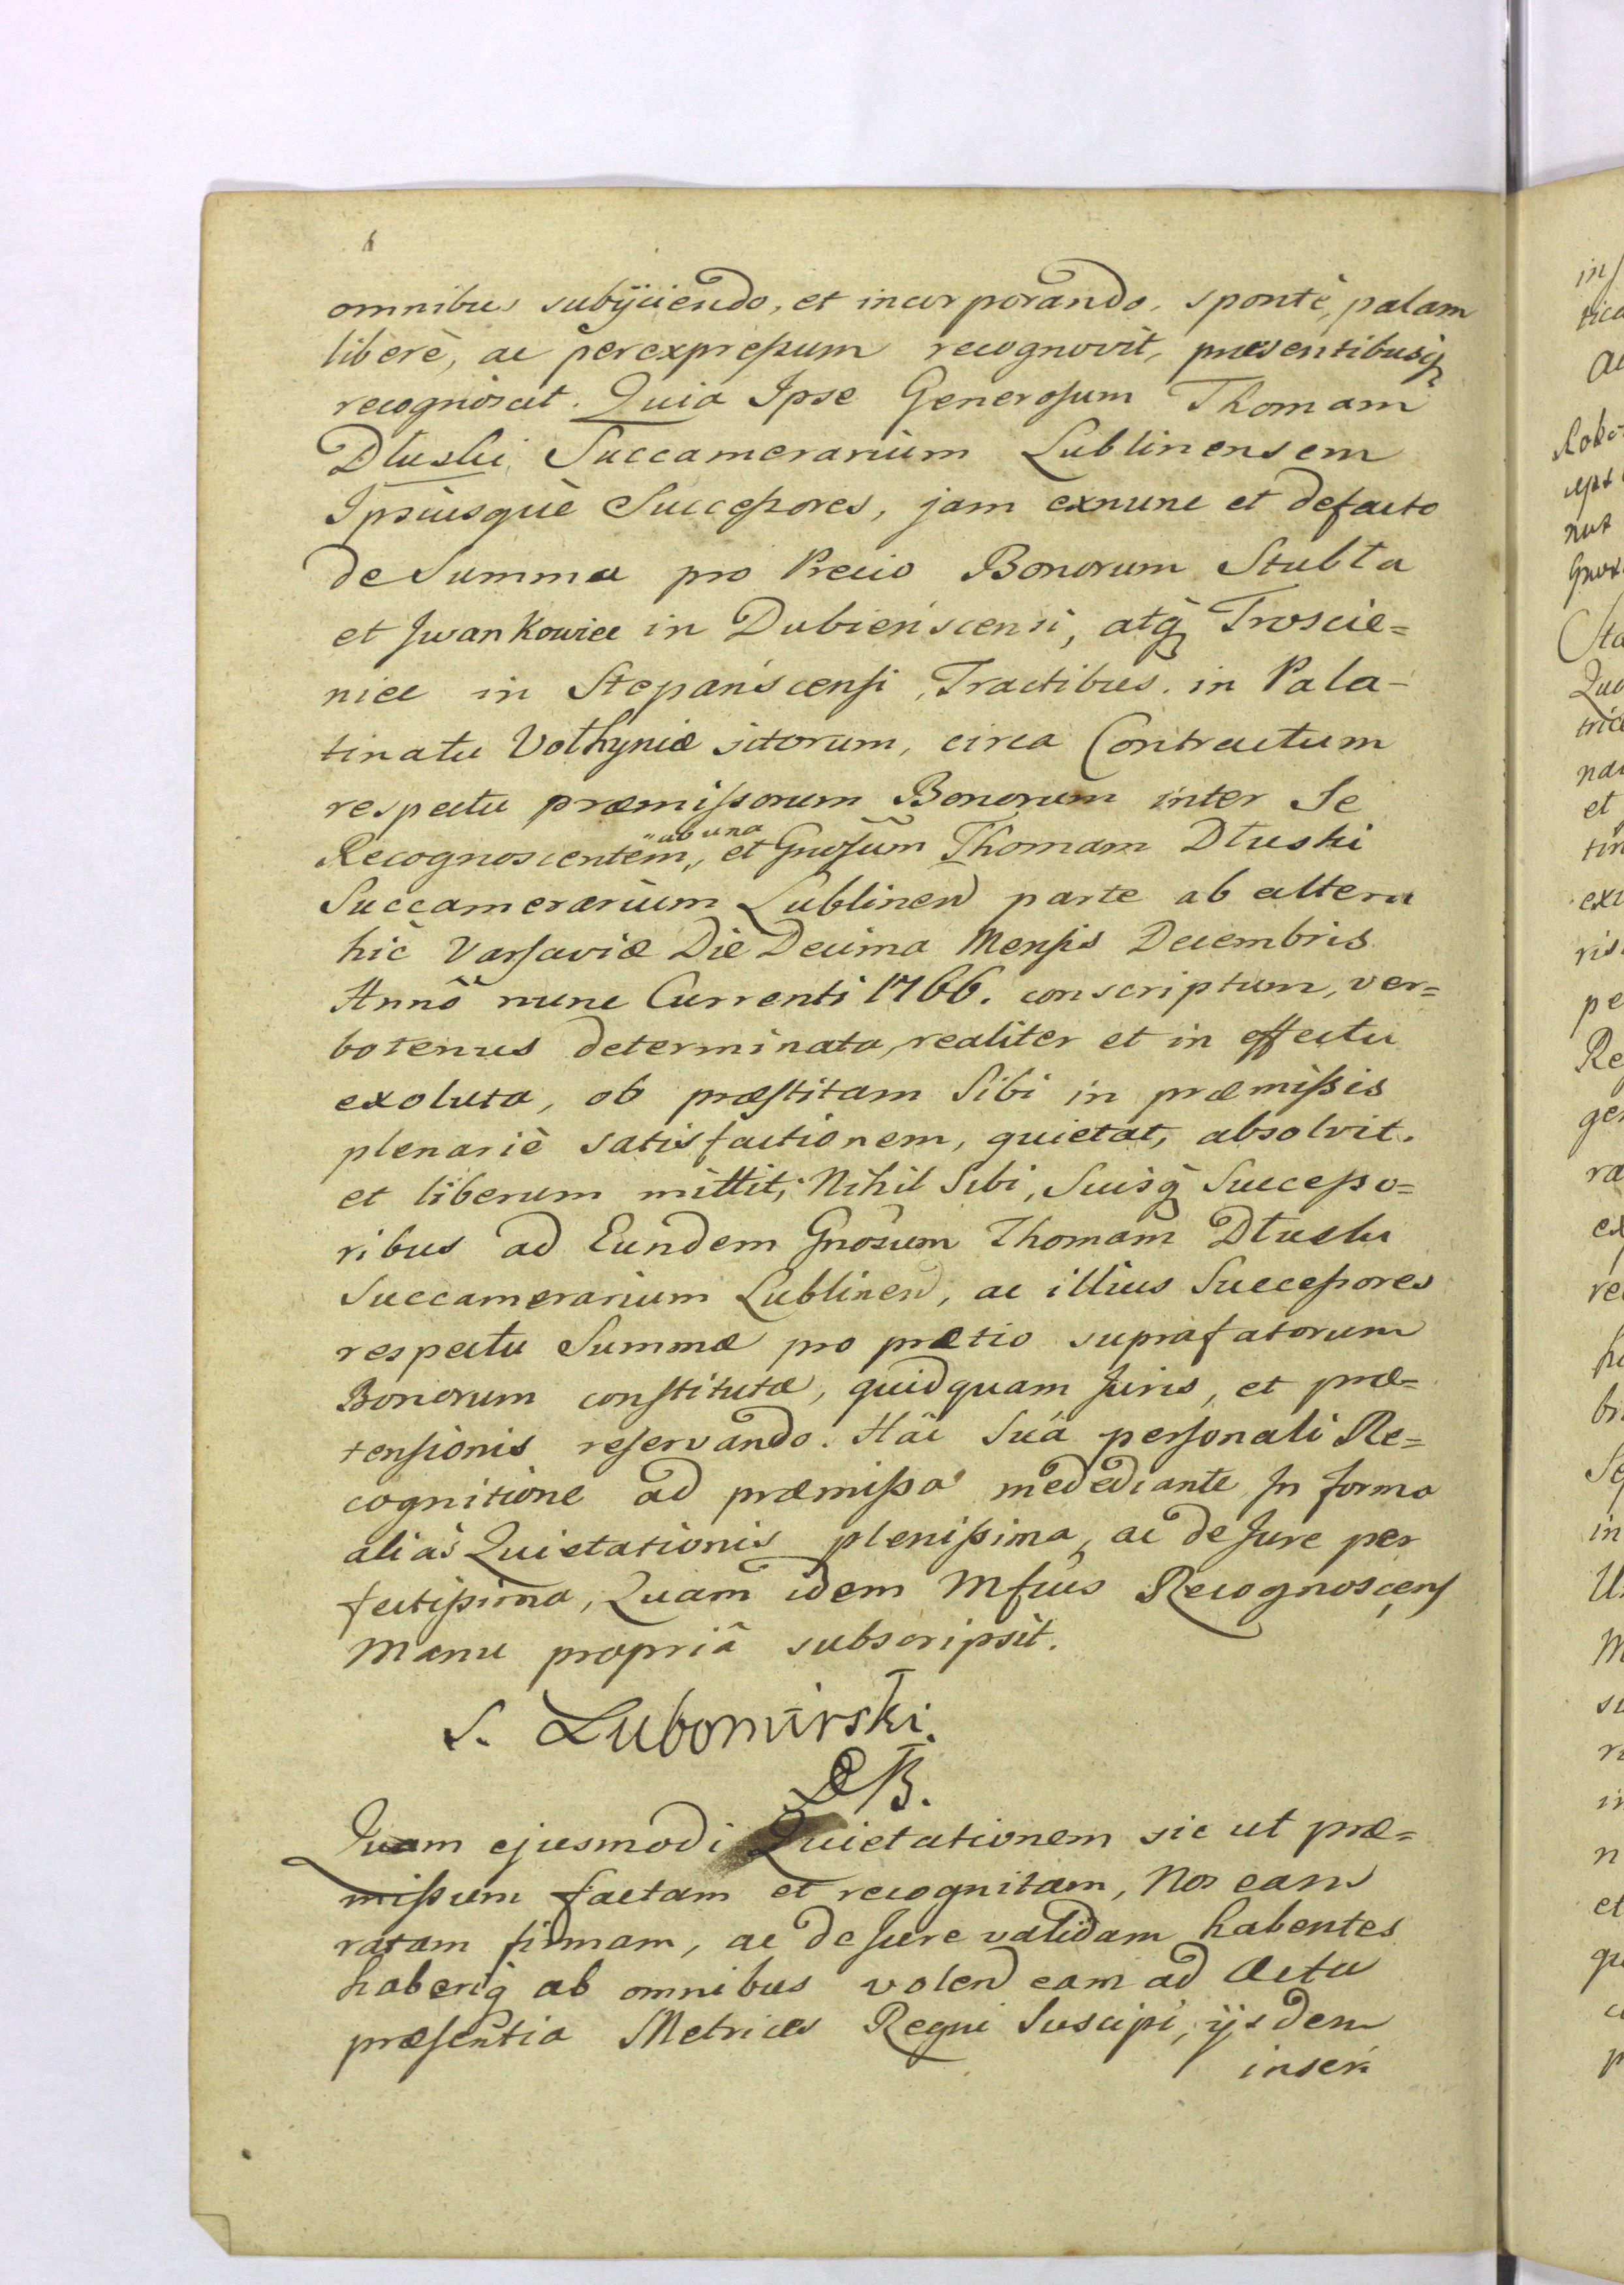 omnibus subÿciendo, et incorporando, spontè, palam
liberè, ac perexpressum recognovit, præsentibusq́
recognoscit. Quia Ipse Generosum Thomam
Dłuski Succamerarium Lublinensem
Ipsiusquè Successores, jam exnunc et defacto
de Summa pro Precio Bonorum Stubła
et Jwankowice in Dubieńscensi, atq́ Troscie=
nice in Stepańscensi, Tractibus, in Pala-
tinatu Volhyniæ sitorum, circa Contractum
respectu præmissorum Bonorum inter Se
Recognoscentem, "ab una et Gnosum Thomam Dłuski
Succamerarium Lublinen parte ab altera
hic Varsaviæ Die Decima Mensis Decembris
Annô nunc Currenti 1766. conscriptum, ver=
botenus determinata, realiter et in effectu
exoluta, ob præstitam Sibi in præmissis
plenariè satisfactionem, quietat, absolvit.
et liberum mittit, Nihil Sibi, Suisq́ Successo=
ribus ad Eundem Gnosum Thomam Dłuski
Succamerarium Lublinen, ac illius Successores
respectu Summæ pro prætio suprafatorum
Bonorum constitutæ, quidquam Juris, et præ=
tensionis reservando. Hâc Suâ personali Re=
cognitione ad præmissa medediante In forma
aliàs Quietationis plenissima, ac de Jure per
fectissima, Quam idem Mfcus Recognoscens
Manu propriâ subscripsit.
S. Lubomirski.
Quam ejusmodi Quietationem sic ut præ=
missum factam et recognitam, Nos eam
ratam firmam, ac de Jure validam habentes
haberiq́ ab omnibus volen eam ad Acta
præsentia Metrices Regni Suscipi, ÿsdem
inseri